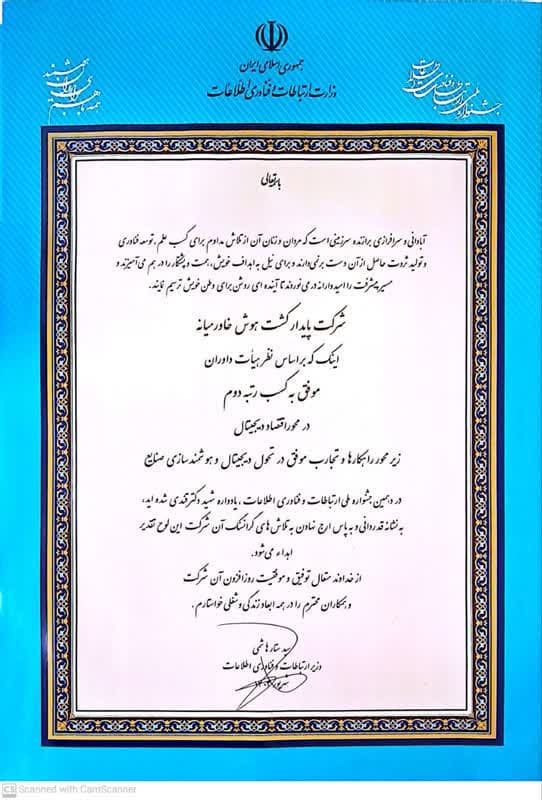 جمهوری اسلامی ایران
وزارت ارتباطات و فناوری اطلاعات
باسمه‌تعالی
آبادانی و سرافرازی برازنده سرزمینی است که مردان و زنان آن از تلاش مداوم برای کسب علم، توسعه فناوری
و تولید ثروت حاصل از آن دست برنمی‌دارند و برای نیل به اهداف خویش، همت و پشتکار را در هم می‌آمیزند و
مسیر پیشرفت را امیدوارانه در می‌نوردند تا آینده ای روشن برای وطن خویش ترسیم نمایند.
شرکت پایدار کشت هوش خاورمیانه
اینک که بر اساس نظر هیأت داوران
موفق به کسب رتبه دوم
در محور اقتصاد دیجیتال
زیر محور راهکارها و تجارب موفق در تحول دیجیتال و هوشمندسازی صنایع
در دهمین جشنواره ملی ارتباطات و فناوری اطلاعات، یادواره شهید دکتر قندی شده اید،
به نشانه قدردانی و به پاس ارج نهادن به تلاش های گرانسنگ آن شرکت این لوح تقدیر
اهداء می‌شود.
از خداوند متعال توفیق و موفقیت روزافزون آن شرکت
و همکاران محترم را در همه ابعاد زندگی و شغلی خواستارم.
سید ستار هاشمی
وزیر ارتباطات و فناوری اطلاعات
CS Scanned with CamScanner